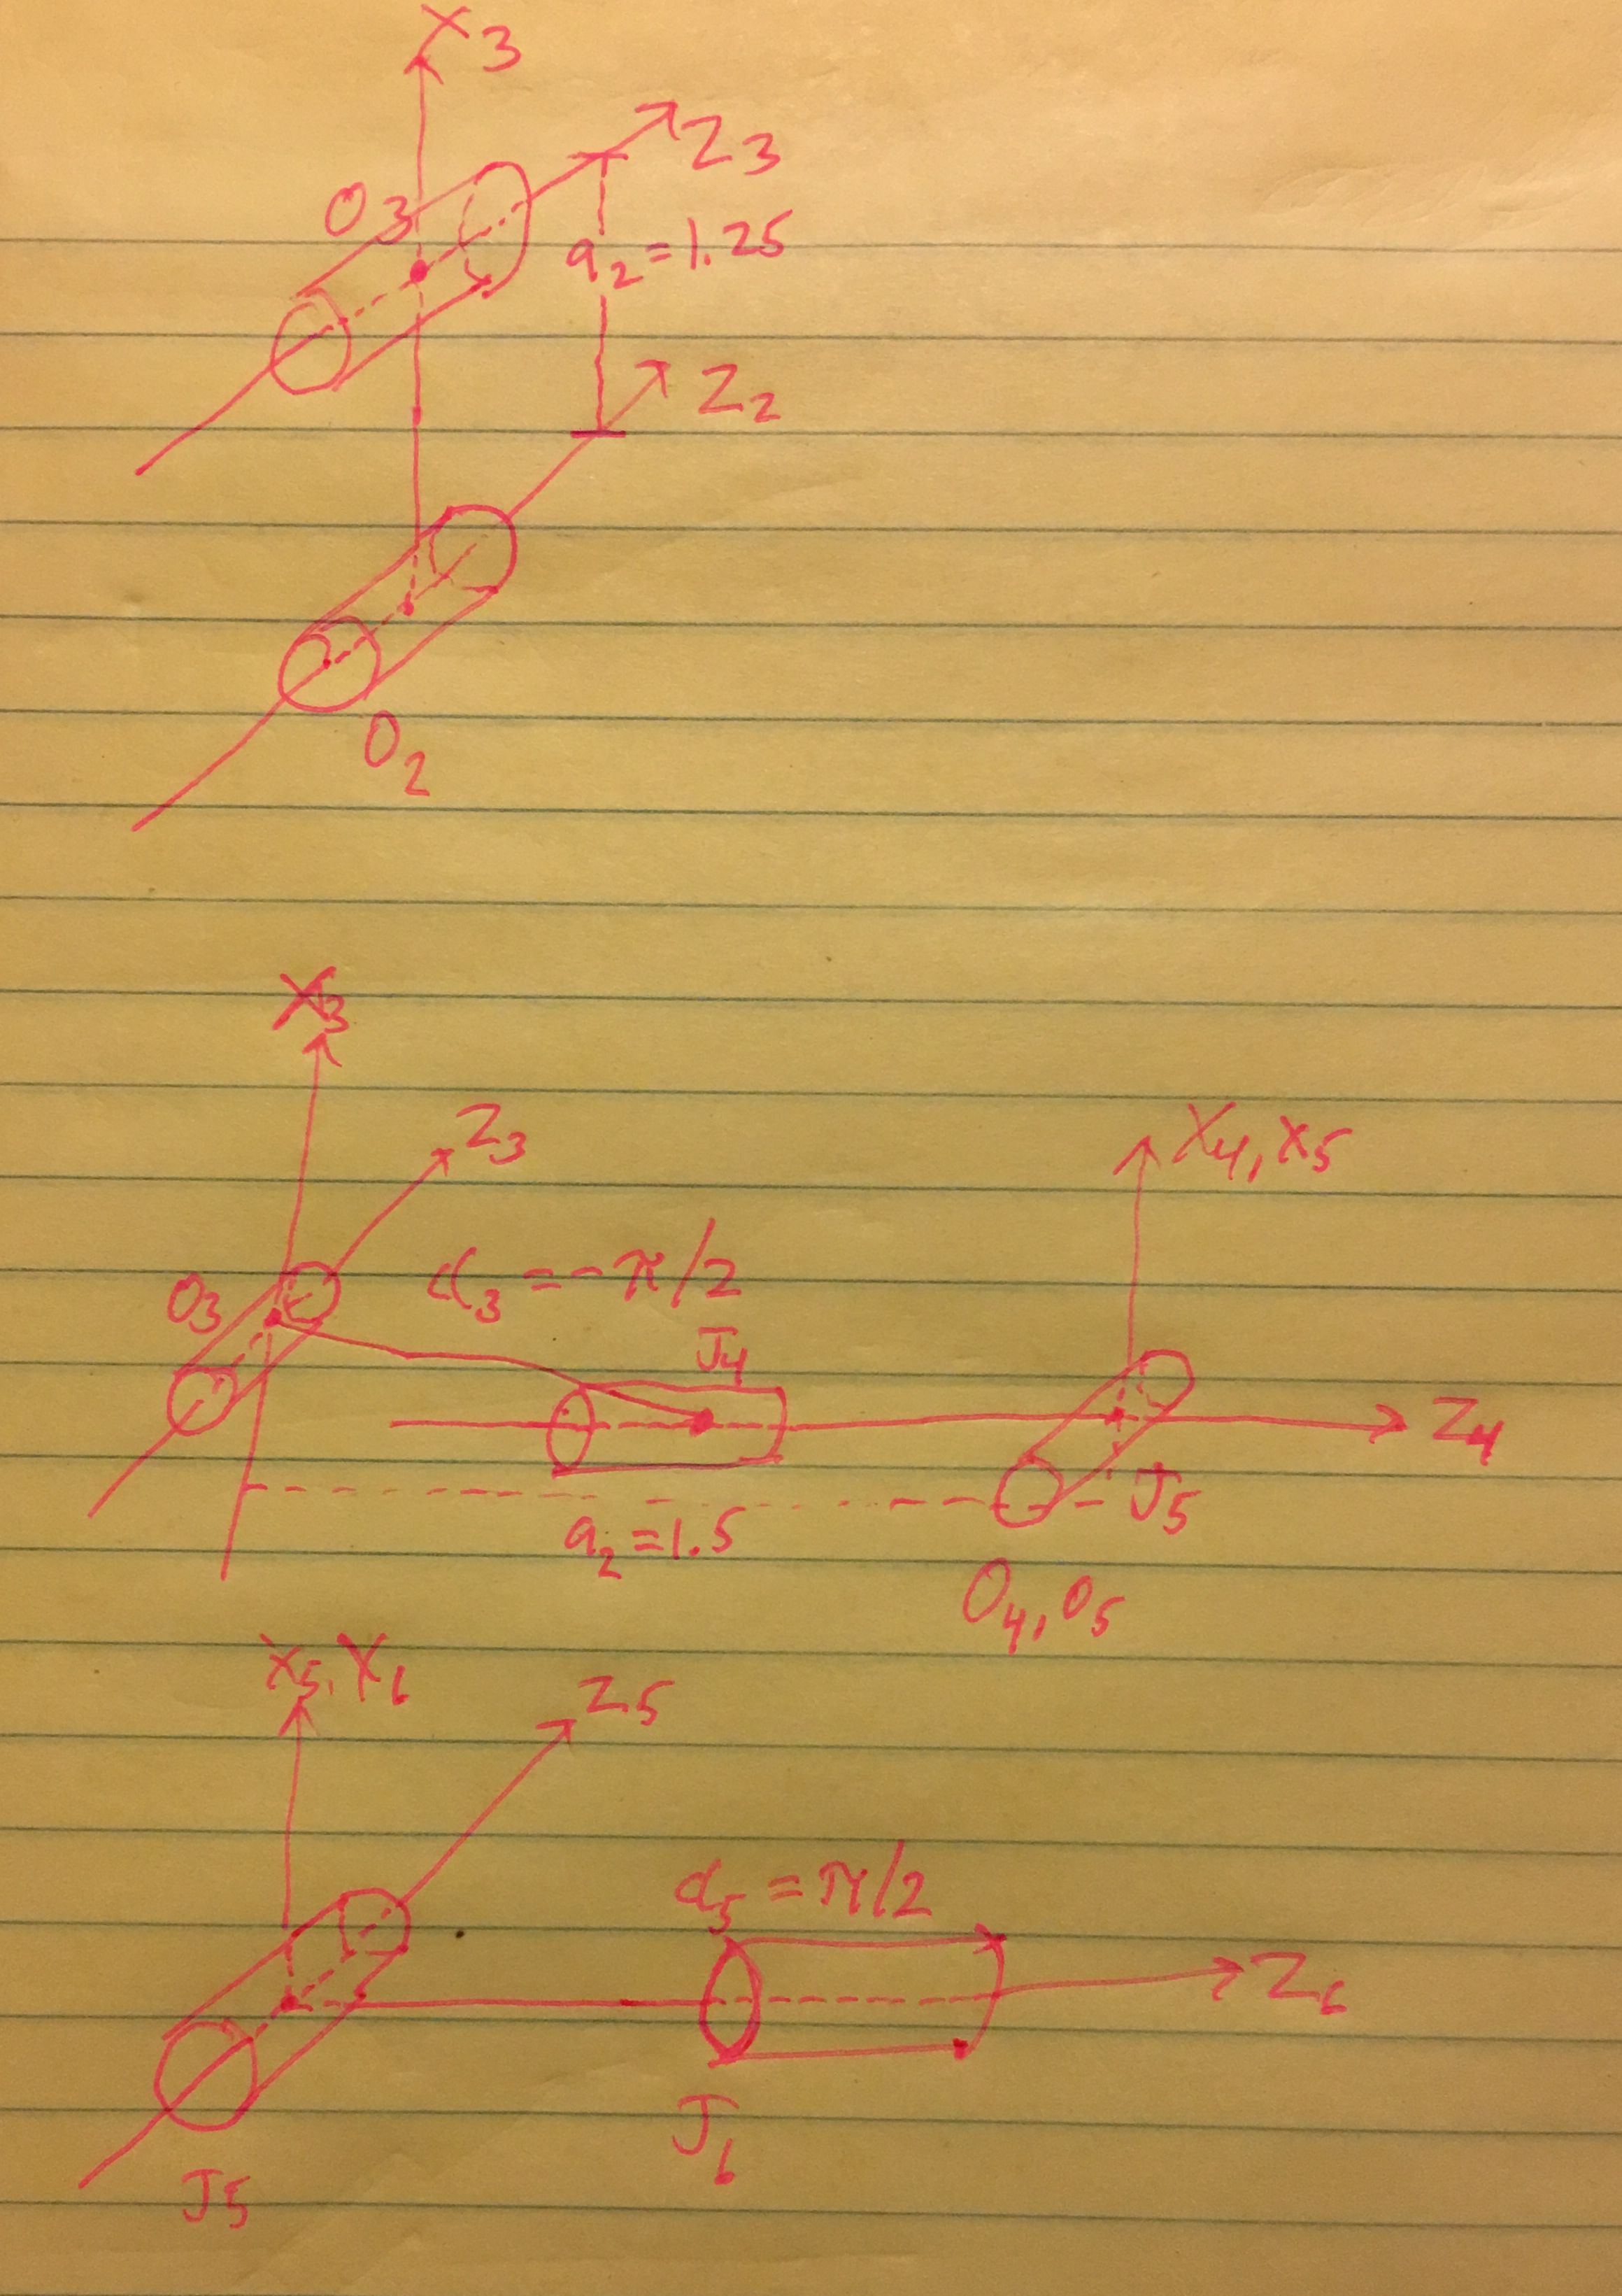 X3
Z3
O3
a2=1.25
Z2
O2
X3
Z3
X4,X5
O3
α3=-π/2
J4
Z4
J5
a2=1.5
O4,O5
X5,X6
Z5
α5=π/2
Z6
J6
J5